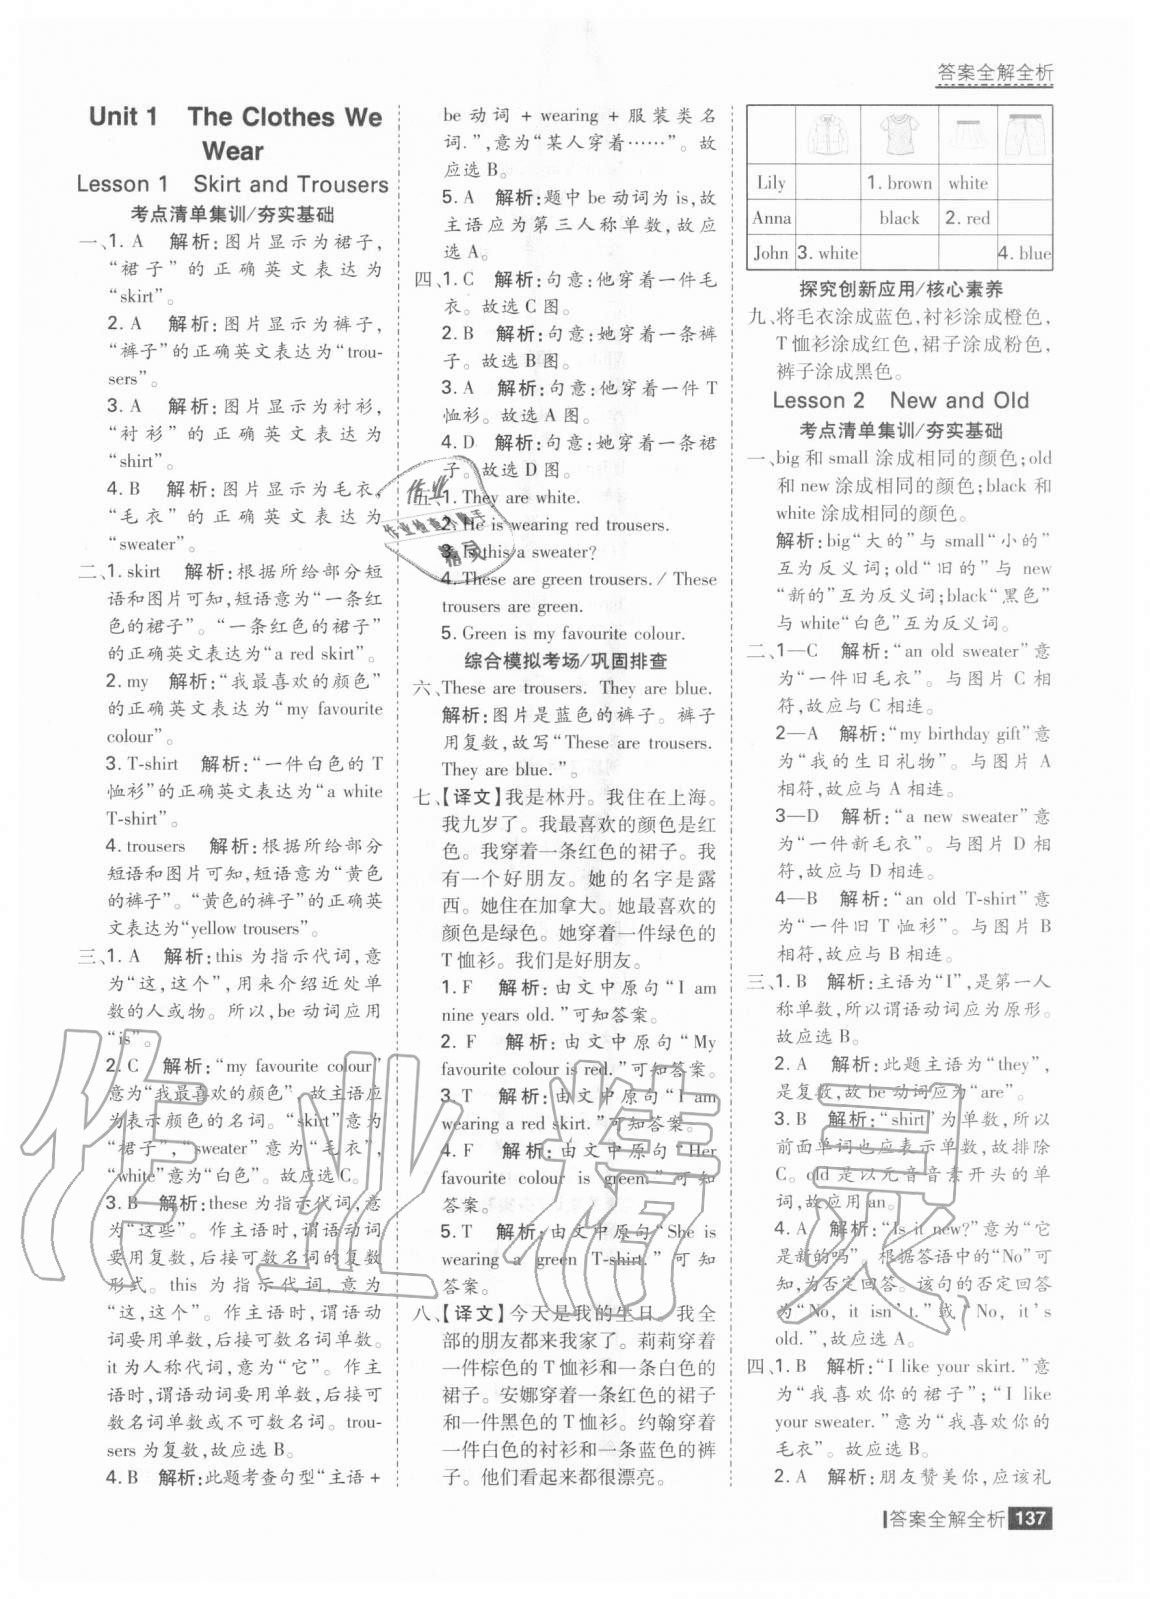 答案全解全析
Unit 1 The Clothes We
Wear
Lesson 1 Skirt and Trousers
考点清单集训/夯实基础
一、1. A 解析:图片显示为裙子,
“裙子”的正确英文表达为
“skirt”。
2. A 解析:图片显示为裤子,
“裤子”的正确英文表达为“trou-
sers”。
3. A 解析:图片显示为衬衫,
“衬衫”的正确英文表达为
“shirt”。
4. B 解析:图片显示为毛衣,
“毛衣”的正确英文表达为
“sweater”。
二、1. skirt 解析:根据所给部分短
语和图片可知,短语意为“一条红
色的裙子”。“一条红色的裙子”
的正确英文表达为“a red skirt”。
2. my 解析:“我最喜欢的颜色”
的正确英文表达为“my favourite
colour”。
3. T-shirt 解析:“一件白色的 T
恤衫”的正确英文表达为“a white
T-shirt”。
4. trousers 解析:根据所给部分
短语和图片可知,短语意为“黄色
的裤子”。“黄色的裤子”的正确英
文表达为“yellow trousers”。
三、1. A 解析:this 为指示代词,意
为“这,这个”,用来介绍近处单
数的人或物。所以,be 动词应用
“is”。
2. C 解析:“my favourite colour”
意为“我最喜爱的颜色”,故主语应
为表示颜色的名词。“skirt”意为
“裙子”,“sweater”意为“毛衣”,
“white”意为“白色”。故应选 C。
3. B 解析:these 为指示代词,意
为“这些”。作主语时,谓语动词
要用复数,后接可数名词的复数
形式。this 为指示代词,意为
“这,这个”。作主语时,谓语动
词要用单数,后接可数名词单数。
it 为人称代词,意为“它”。作主
语时,谓语动词要用单数,后接可
数名词单数或不可数名词。trou-
sers 为复数,故应选 B。
4. B 解析:此题考查句型“主语 +
be 动词 + wearing + 服装类名
词.”,意为“某人穿着……”。故
应选 B。
5. A 解析:题中 be 动词为 is,故
主语应为第三人称单数,故应
选 A。
四、1. C 解析:句意:他穿着一件毛
衣。故选 C 图。
2. B 解析:句意:她穿着一条裤
子。故选 B 图。
3. A 解析:句意:他穿着一件 T
恤衫。故选 A 图。
4. D 解析:句意:她穿着一条裙
子。故选 D 图。
五、1. They are white.
2. He is wearing red trousers.
3. Is this a sweater?
4. These are green trousers. / These
trousers are green.
5. Green is my favourite colour.
综合模拟考场/巩固排查
六、These are trousers. They are blue.
解析:图片是蓝色的裤子。裤子
用复数,故写“These are trousers.
They are blue.”。
七、【译文】我是林丹。我住在上海。
我九岁了。我最喜欢的颜色是红
色。我穿着一条红色的裙子。我
有一个好朋友。她的名字是露
西。她住在加拿大。她最喜欢的
颜色是绿色。她穿着一件绿色的
T 恤衫。我们是好朋友。
1. F 解析:由文中原句“I am
nine years old.”可知答案。
2. F 解析:由文中原句“My
favourite colour is red.”可知答案。
3. T 解析:由文中原句“I am
wearing a red skirt.”可知答案。
4. F 解析:由文中原句“Her
favourite colour is green.”可知
答案。
5. T 解析:由文中原句“She is
wearing a green T-shirt.”可知
答案。
八、【译文】今天是我的生日。我全
部的朋友都来我家了。莉莉穿着
一件棕色的 T 恤衫和一条白色的
裙子。安娜穿着一条红色的裙子
和一件黑色的 T 恤衫。约翰穿着
一件白色的衬衫和一条蓝色的裤
子。他们看起来都很漂亮。
Lily 1. brown white
Anna black 2. red
John 3. white 4. blue
探究创新应用/核心素养
九、将毛衣涂成蓝色,衬衫涂成橙色,
T 恤衫涂成红色,裙子涂成粉色,
裤子涂成黑色。
Lesson 2 New and Old
考点清单集训/夯实基础
一、big 和 small 涂成相同的颜色;old
和 new 涂成相同的颜色;black 和
white 涂成相同的颜色。
解析:big“大的”与 small“小的”
互为反义词;old“旧的”与 new
“新的”互为反义词;black“黑色”
与 white“白色”互为反义词。
二、1—C 解析:“an old sweater”意
为“一件旧毛衣”。与图片 C 相
符,故应与 C 相连。
2—A 解析:“my birthday gift”意
为“我的生日礼物”。与图片 A
相符,故应与 A 相连。
3—D 解析:“a new sweater”意
为“一件新毛衣”。与图片 D 相
符,故应与 D 相连。
4—B 解析:“an old T-shirt”意
为“一件旧 T 恤衫”。与图片 B
相符,故应与 B 相连。
三、1. B 解析:主语为“I”,是第一人
称单数,所以谓语动词应为原形。
故应选 B。
2. A 解析:此题主语为“they”,
是复数,故 be 动词应为“are”。
3. B 解析:“shirt”为单数,所以
前面单词也应表示单数,故排除
C。old 是以元音音素开头的单
词,故应用 an。
4. A 解析:“Is it new?”意为“它
是新的吗”,根据答语中的“No”可
知,为否定回答。该句的否定回答
为“No, it isn't.”或“No, it's
old.”,故应选 A。
四、1. B 解析:“I like your skirt.”意
为“我喜欢你的裙子”;“I like
your sweater.”意为“我喜欢你的
毛衣”。故应选 B。
2. A 解析:朋友赞美你,应该礼
答案全解全析 137
作业
作业检查小助手
精灵
作业精灵